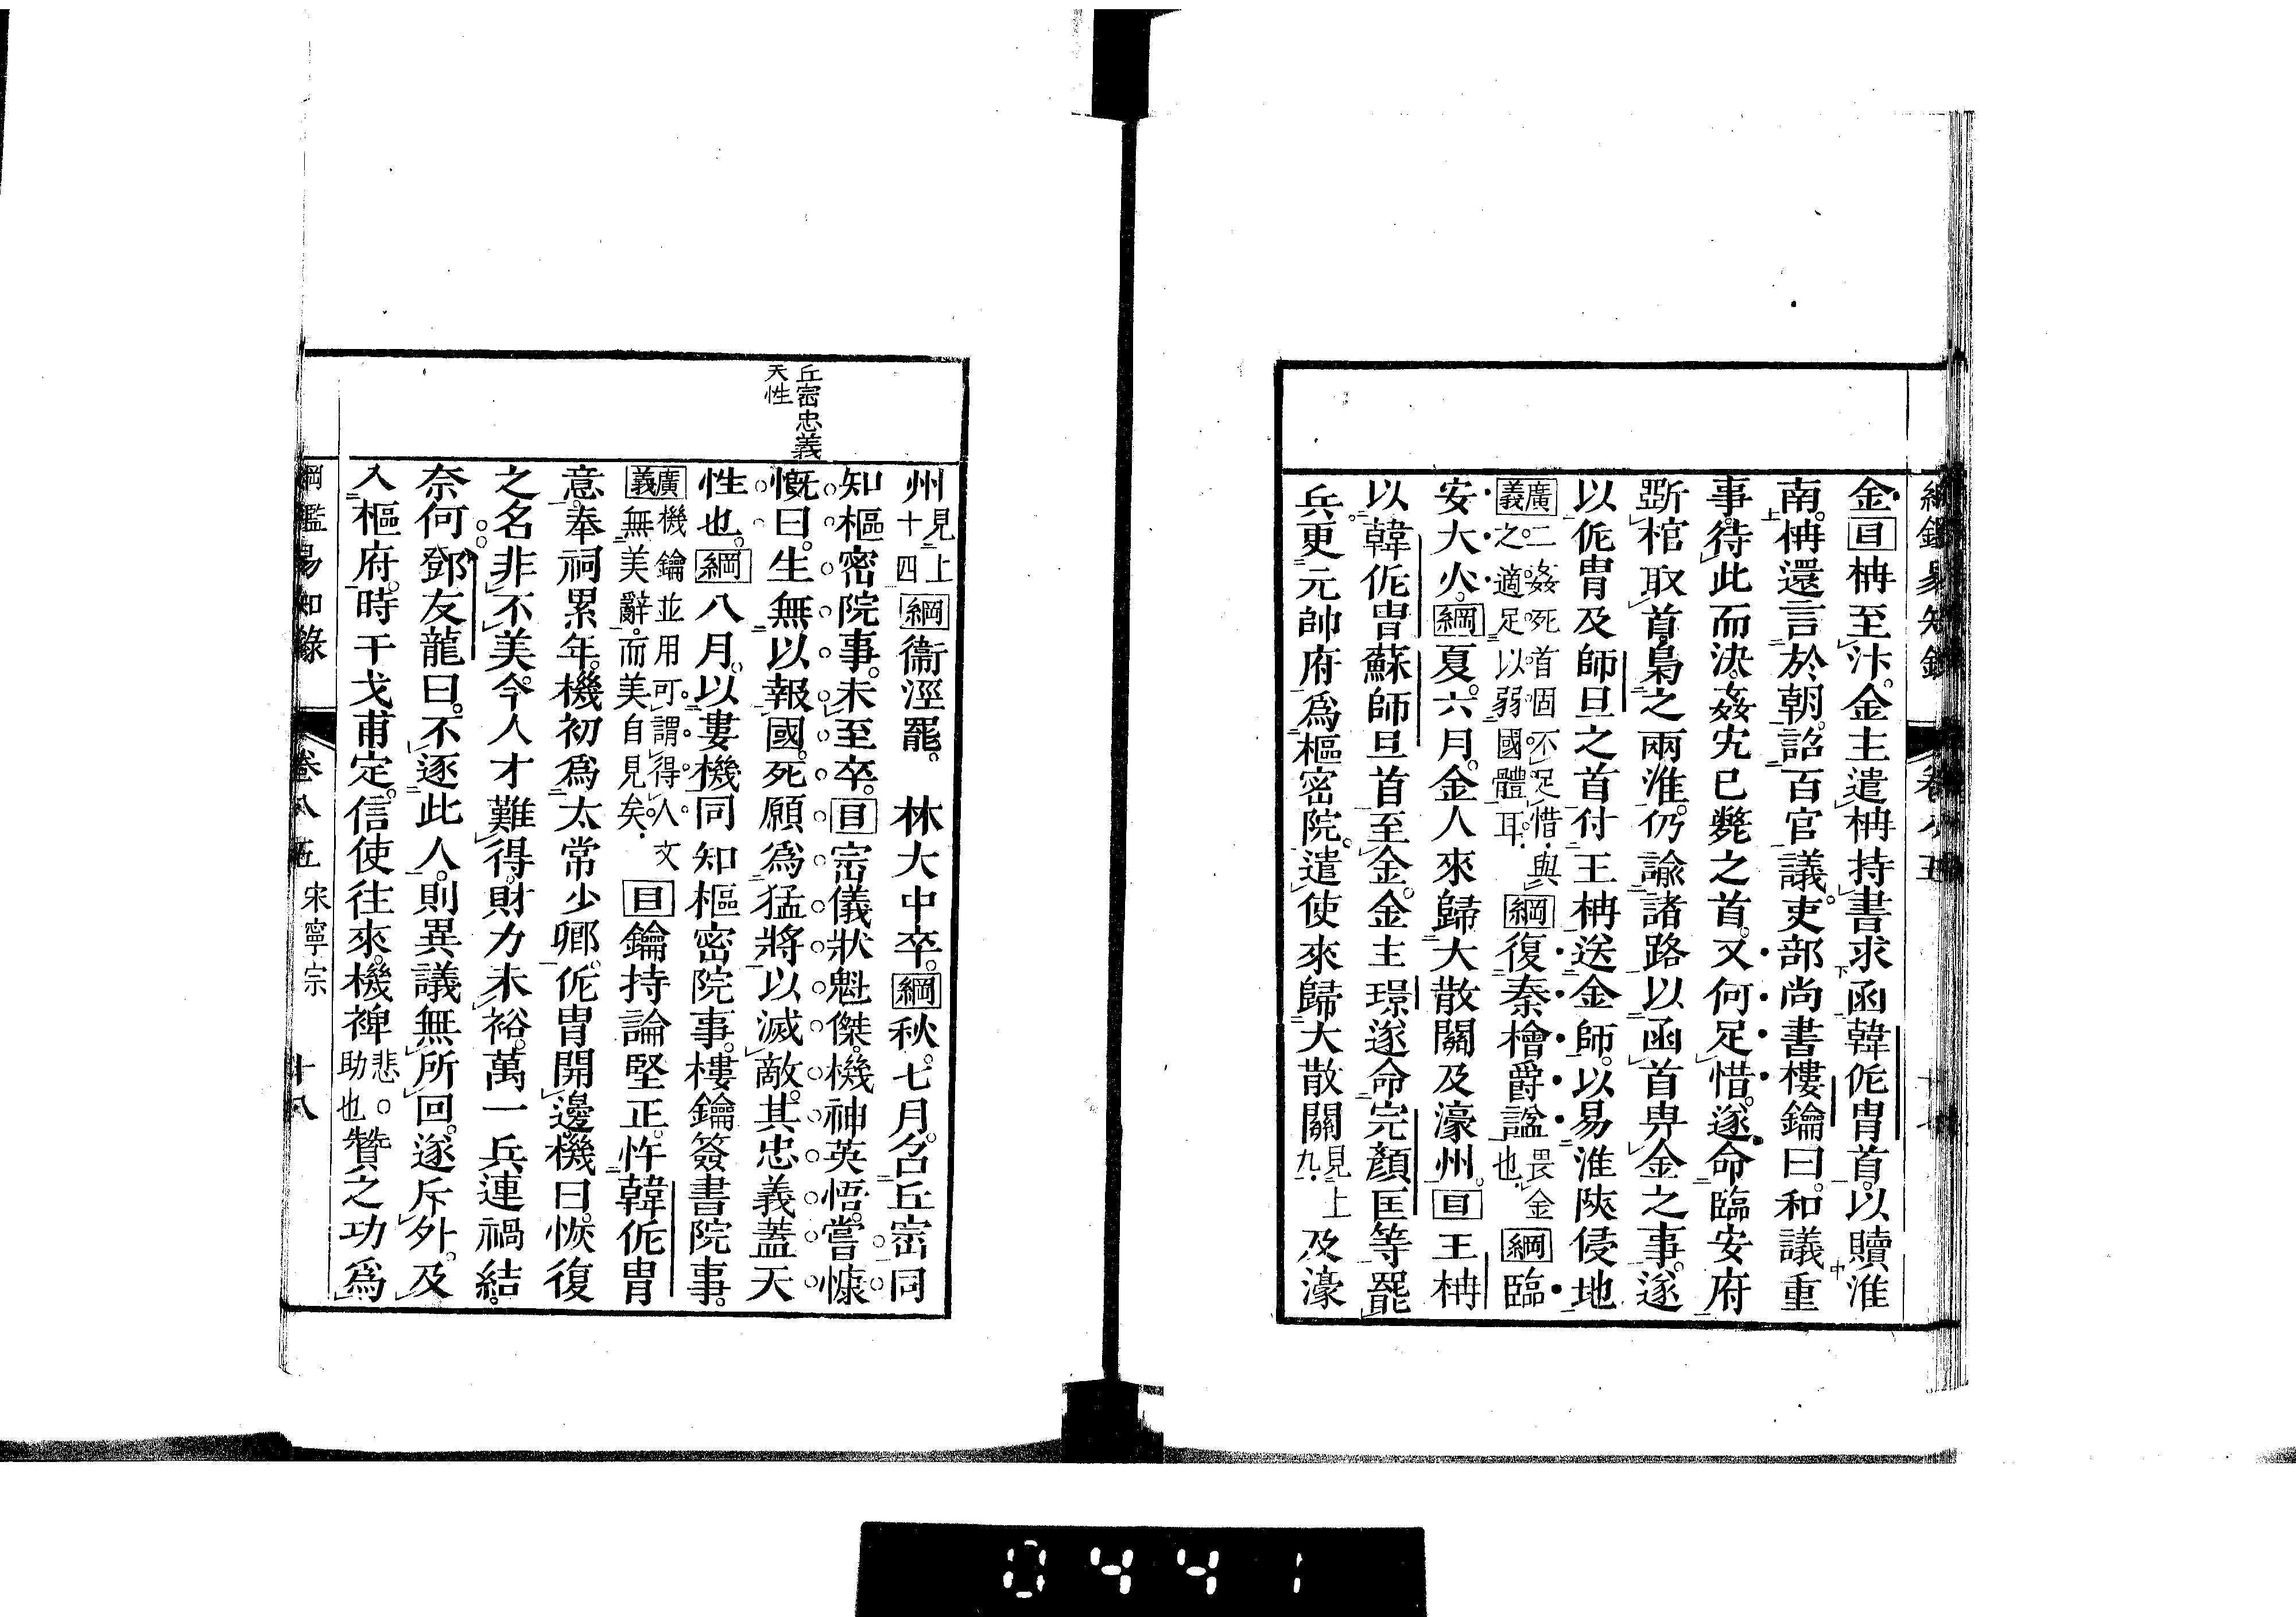 綱鑑易知錄 卷八五
金目柟至汴金主遣柟持書求函韓侂胄首以贖淮
南柟還言於朝詔百官議吏部尚書樓鑰曰和議重
事待此而決姦宄已斃之首又何足惜遂命臨安府
斲棺取首梟之兩淮仍諭諸路以函首畀金之事遂
以侂胄及師旦之首付王柟送金師以易淮陝侵地
廣義二姦死首固不足惜與之適足以弱國體耳綱復秦檜爵諡畏金也綱臨
安大火綱夏六月金人來歸大散關及濠州目王柟
以韓侂胄蘇師旦首至金金主璟遂命完顏匡等罷
兵更元帥府爲樞密院遣使來歸大散關見上九及濠
丘崈忠義
天性
州見上十四綱衞涇罷 林大中卒綱秋七月召丘崈同
知樞密院事未至卒目崈儀狀魁傑機神英悟嘗慷
慨曰生無以報國死願爲猛將以滅敵其忠義蓋天
性也綱八月以婁機同知樞密院事樓鑰簽書院事
廣義機鑰並用可謂得人文無美辭而美自見矣目鑰持論堅正忤韓侂胄
意奉祠累年機初爲太常少卿侂胄開邊機曰恢復
之名非不美今人才難得財力未裕萬一兵連禍結
奈何鄧友龍曰不逐此人則異議無所回遂斥外及
入樞府時干戈甫定信使往來機裨悲助也贊之功爲
綱鑑易知錄 卷八五 宋寧宗 十八
0441